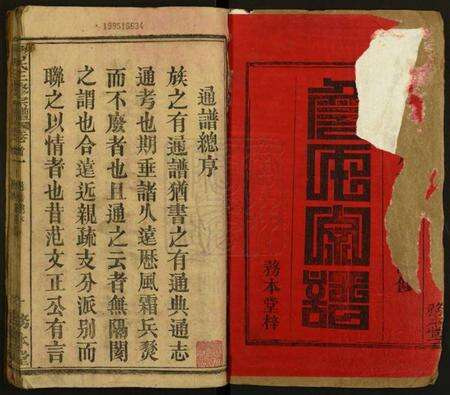 199515634
通譜總序
族之有通譜猶書之有通典通志
通考也期垂諸久遠歷風霜兵燹
而不廢者也且通之云者無隔閡
之謂也合遠近親疏支分派別而
聯之以情者也昔范文正公有言
務本堂
氏宗譜
務本堂梓